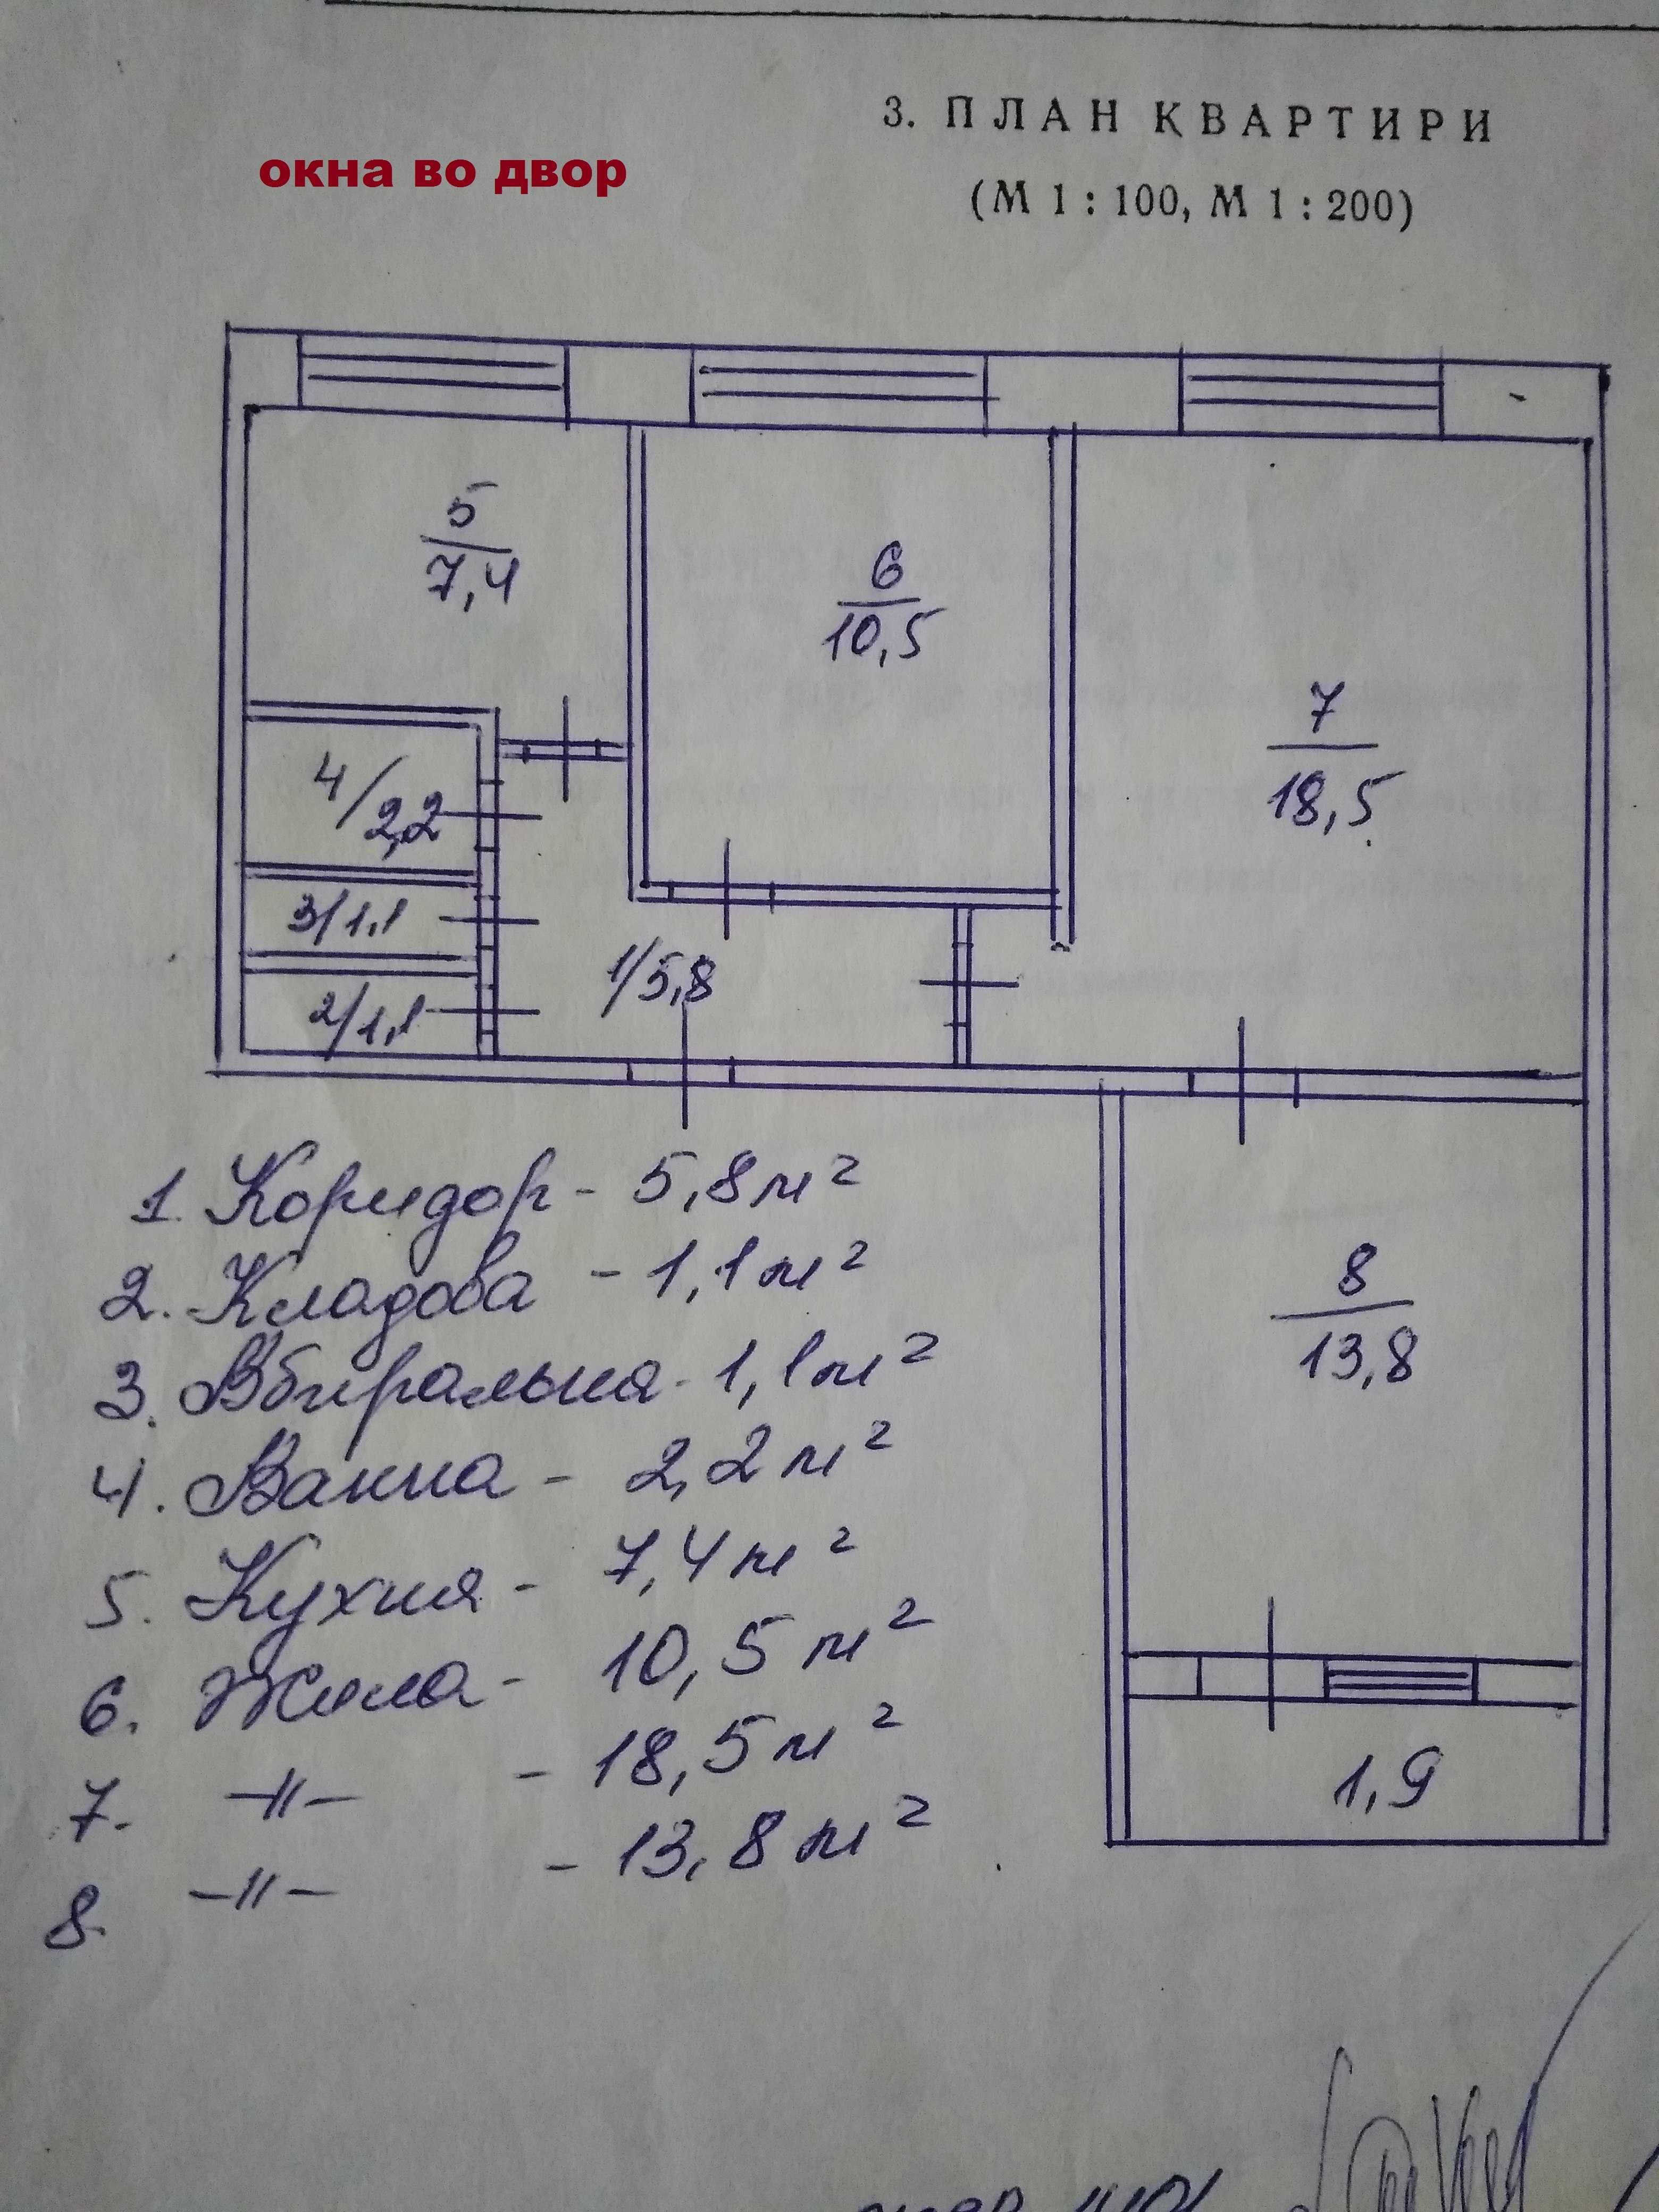 3. ПЛАН КВАРТИРИ
окна во двор
(М 1 : 100, М 1 : 200)
5
7,4
6
10,5
7
18,5
4/2,2
3/1,1
1/5,8
2/1,1
1. Коридор - 5,8 м²
2. Кладова - 1,1 м²
3. Вбиральня - 1,1 м²
4. Ванна - 2,2 м²
5. Кухня - 7,4 м²
6. Жила - 10,5 м²
7. -//- - 18,5 м²
8. -//- - 13,8 м²
8
13,8
1,9